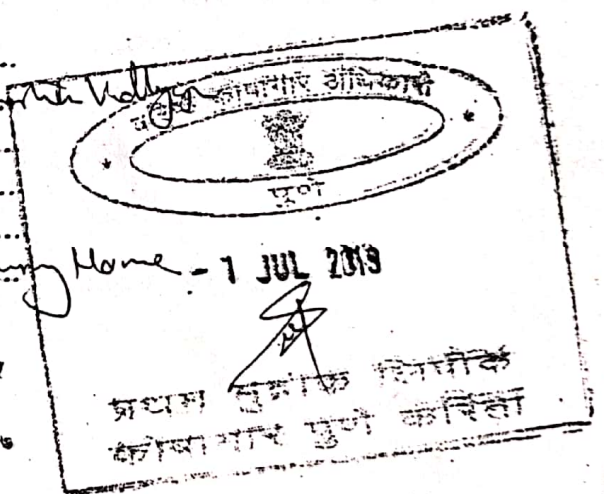 कोषागार अधिकारी
पुणे
Home - 1 JUL 2019
प्रथम मुद्रांक लिपीक
कोषागार पुणे करिता